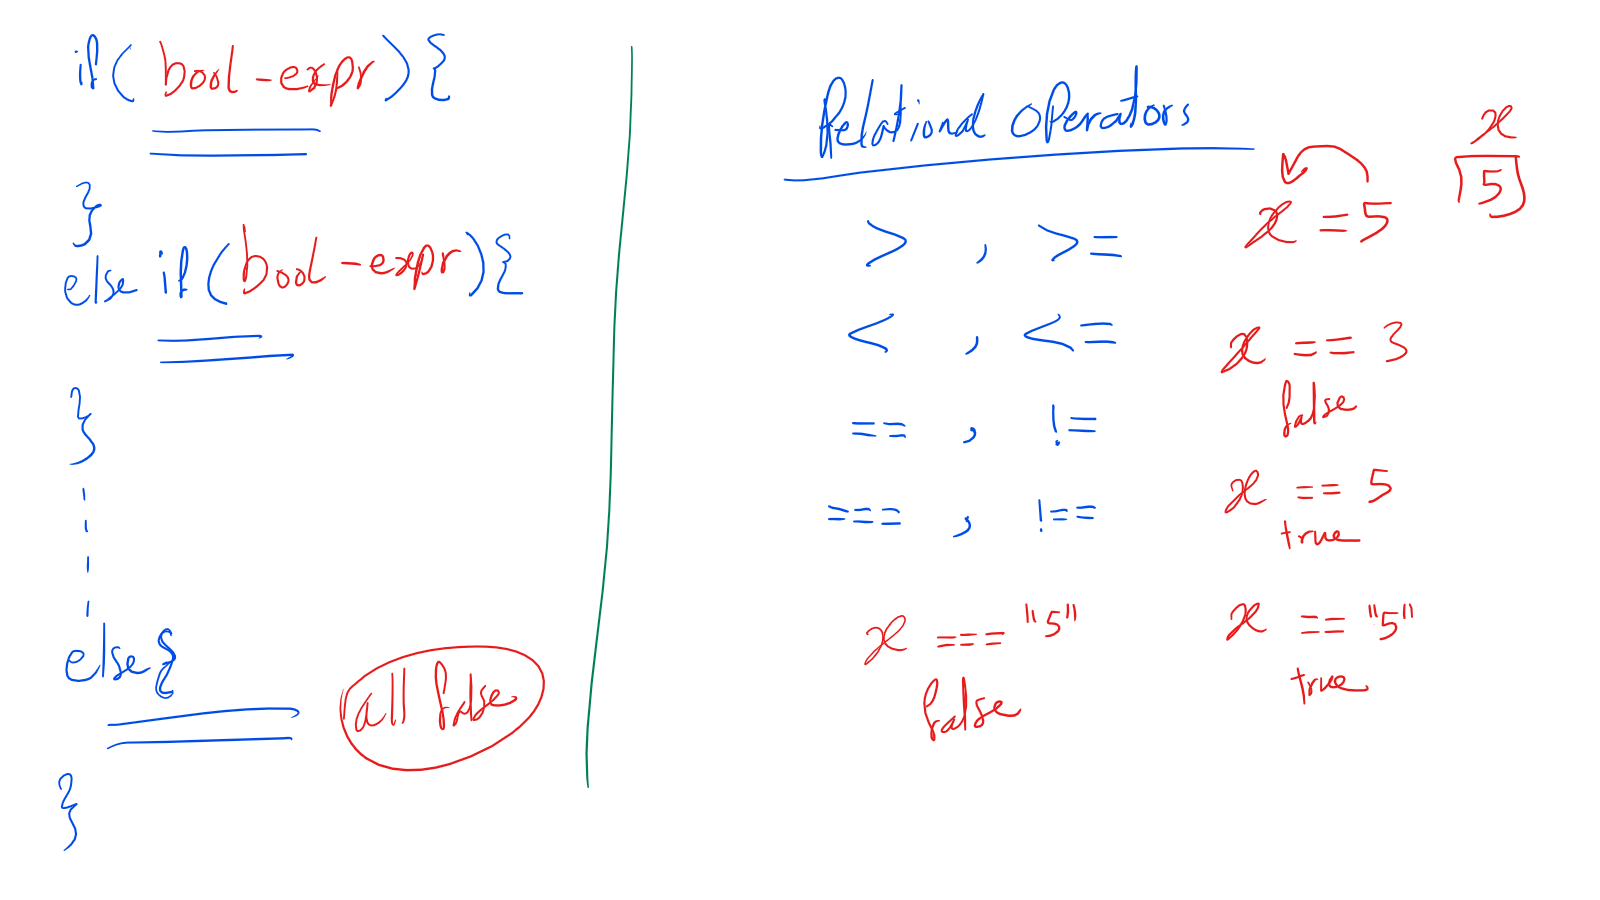 if( bool-expr ){
}
else if( bool-expr ){
}
else{
all false
}
Relational operators
> , >=
< , <=
== , !=
=== , !==
x === "5"
false
x
5
x = 5
x == 3
false
x == 5
true
x == "5"
true